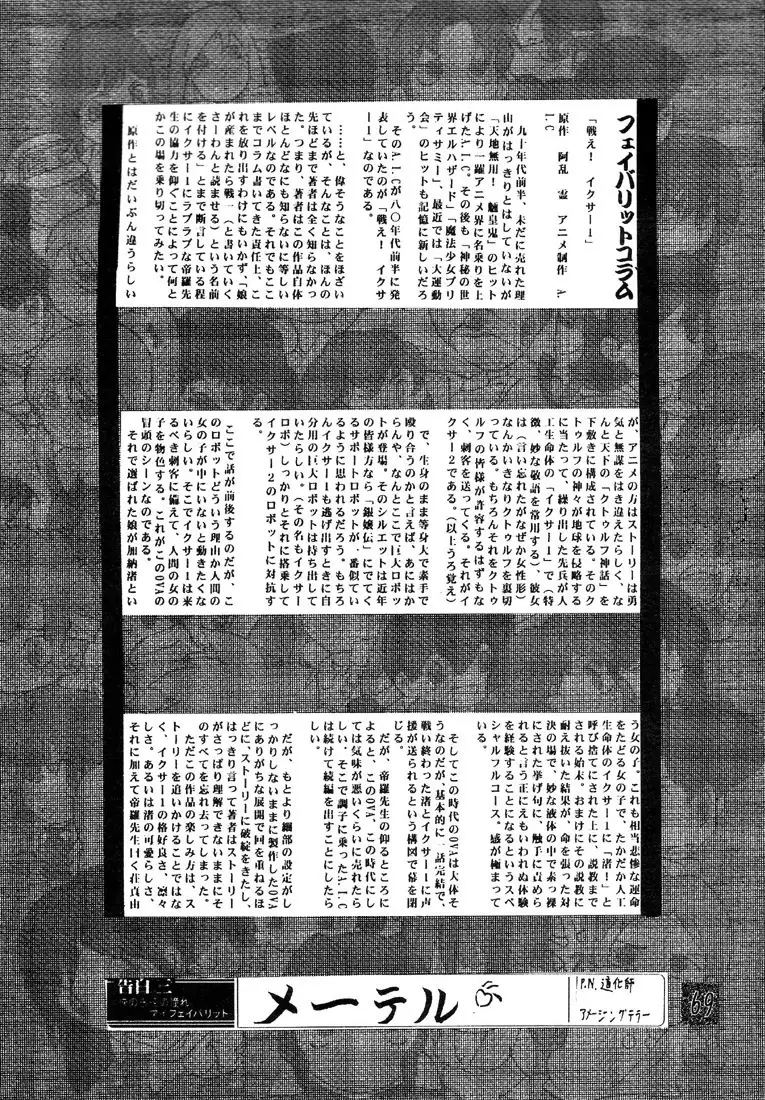 フェイバリットコラム
「戦え！イクサー１」
原作　阿乱　霊　アニメ制作　A.
I.C
　九十年代前半、未だに売れた理
山がはっきりとはしていないが
「天地無用！　魎皇鬼」のヒット
により一躍アニメ界に名乗りを上
げたA.I.C。その後も「神秘の世
界エルハザード」「魔法少女プリ
ティサミー」、最近では「大運動
会」のヒットも記憶に新しいだろ
う。
　そのA.I.Cが八〇年代前半に発
表していたのが「戦え！　イクサ
ー１」なのである。
……と、偉そうなことをほざい
ているが、そんなことは、ほんの
先ほどまで著者は全く知らなかっ
た。つまり、著者はこの作品自体
ほとんどなにも知らないに等しい
レベルなのである。それでもここ
までコラム書いてきた責任上、こ
れを放り出すわけにもいかず、「娘
が産まれたら戦一（と書いていく
さーわんと読ませる）という名前
を付ける」とまで断言している程
にイクサー１にラブラブな帝羅先
生の協力を仰ぐことによって何と
かこの場を乗り切ってみたい。
　原作とはだいぶん違うらしい
が、アニメの方はストーリーは勇
気と無謀をはき違えたらしく、な
んと天下の「クトゥルフ神話」を
下敷きに構成されている。そのク
トゥルフの神々が地球を侵略する
に当たって、繰り出した先兵が人
工生命体の「イクサー１」で（特
徴、妙な敬語を常用する）、彼女
は（言い忘れたがなぜか女性形）
なんかいきなりクトゥルフを裏切
っている。もちろんそれをクトゥ
ルフの皆様が許容するはずもな
く、刺客を送ってくる。それがイ
クサー２である。（以上うろ覚え）
　で、生身のまま等身大で素手で
殴り合うのかと言えば、あにはか
らんや、なんとここで巨大ロボッ
トが登場。そのシルエットは近年
の皆様方なら、「銀嬢伝」にでてく
るサポートロボットが一番似てい
るように思われるだろう。もちろ
んイクサー１も逃げ出すときに自
分用の巨大ロボットは持ち出して
いたらしい。（その名もイクサー
ロボ）しっかりとそれに搭乗して
イクサー２のロボットに対抗す
る。
　ここで話が前後するのだが、こ
のロボットどういう理由か人間の
女の子が中にいないと動きたくな
いらしい。そこでイクサー１は来
るべき刺客に備えて、人間の女の
子を物色する。これがこのOVAの
冒頭のシーンなのである。
　それで選ばれた娘が加納渚とい
う女の子。これも相当悲惨な運命
をたどる女の子で、たかだか人工
生命体のイクサー１に「渚！」と
呼び捨てにされた上に、説教まで
される始末。おまけにその説教に
耐え抜いた結果が、命を張った対
決の場で、妙な液体の中で素っ裸
にされた挙げ句に、触手に責めら
れると言う正にえもいわれぬ体験
を経験することになるというスペ
シャルフルコース。感が極まって
いる。
　そしてこの時代のOVAは大体そ
うなのだが、基本的に一話完結で、
戦い終わった渚とイクサー１に声
援が送られるという構図で幕を閉
じる。
　だが、帝羅先生の仰るところに
よると、このOVA、この時代にし
ては気味が悪いくらいに売れたら
しい。そこで調子に乗ったA.I.C
は続けて続編を出すことにしたら
しい。
　だが、もとより細部の設定がし
っかりしないままに製作したOVA
にありがちな展開で回を重ねるほ
どに、ストーリーに破綻をきたし、
はっきり言って著者はストーリー
がさっぱり理解できないままにそ
のすべてを忘れ去ってしまった。
　ただこの作品の楽しみ方は、ス
トーリーを追いかけることではな
く、イクサー１の格好良さ、凛々
しさ、あるいは渚の可愛らしさ、
それに加えて帝羅先生曰く荘真由
告白三
マイフェイバリット
メーテル
P.N.道化師
アメージングテラー
69